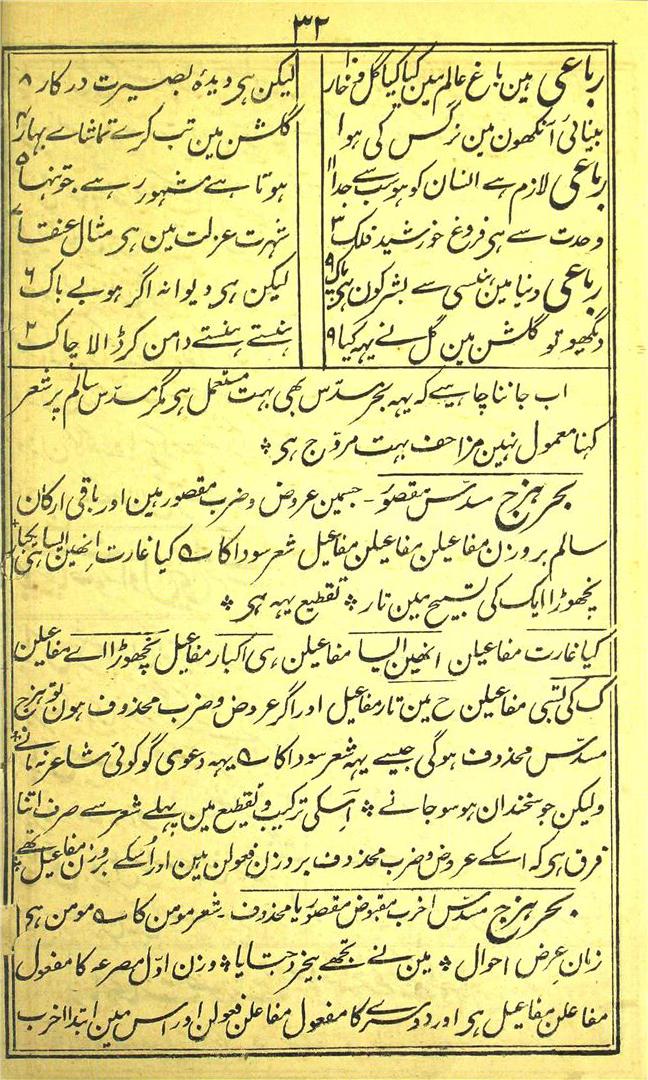 ۳۲
رباعی ہین باغ عالم مین کیا کیا گل و خار ۱
لیکن ہی دیدۂ بصیرت درکار ۸
بینائی آنکھون مین نرگس کی ہو ا
گلشن مین تب کرے تماشاے بہار
رباعی لازم ہے انسان کو ہو سب سے جدا ۱۱
ہوتا ہے مشہور رہے جو تنہا ۵
وحدت سے ہی فروغ خورشید فلک ۳
شہرت عزلت مین ہی مثال عنقا ۷
رباعی دنیا مین ہنسی سے بشر کون ہی پاک ۹
لیکن ہی دیوانہ اگر ہو بے باک ۶
دیکھو تو گلشن مین گل نے یہہ کیا ۹
ہنستے ہنستے دامن کر ڈالا چاک ۲
اب جاننا چاہیے کہ یہہ بحر مسدّس بھی بہت مستعمل ہی مگر مسدّس سالم پر شعر
کہنا معمول نہین مزاحف بہت مروّج ہی ٭
بحر ہزج مسدّس مقصور - جسمین عروض و ضرب مقصور ہین اور باقی ارکان
سالم بر وزن مفاعیلن مفاعیلن مفاعیل شعر سودا کا ؎ کیا غارت انھین ایسا ہی یکبار
نچھوڑا ایک کی تسبیح مین تار ٭ تقطیع یہہ ہی ٭
کیا غارت مفاعیلن انھین ایسا مفاعیلن ہی اکبار مفاعیل نچھوڑا اے مفاعیلن
ک کی تسبی مفاعیلن ح مین تار مفاعیل اور اگر عروض و ضرب محذوف ہون تو ہزج
مسدّس محذوف ہوگی جیسے یہہ شعر سودا کا ؎ یہہ دعوی گو کوئی شاعر نہ مانے
ولیکن جو سخندان ہو سو جانے ٭ اسکی ترکیب و تقطیع مین پہلے شعر سے صرف اتنا
فرق ہی کہ اسکے عروض و ضرب محذوف بر وزن فعولن ہین اور اُسکے بر وزن مفاعیل تھے
بحر ہزج مسدّس اخرب مقبوض مقصور یا محذوف - شعر مومن کا ؎ مومن ہی
زبان عرض احوال ٭ مین نے تجھے بیخرد جتایا ٭ وزن اوّل مصرعہ کا مفعول
مفاعلن مفاعیل ہی اور دوسرے کا مفعول مفاعلن فعولن اور اس مین ابتدا اخرب